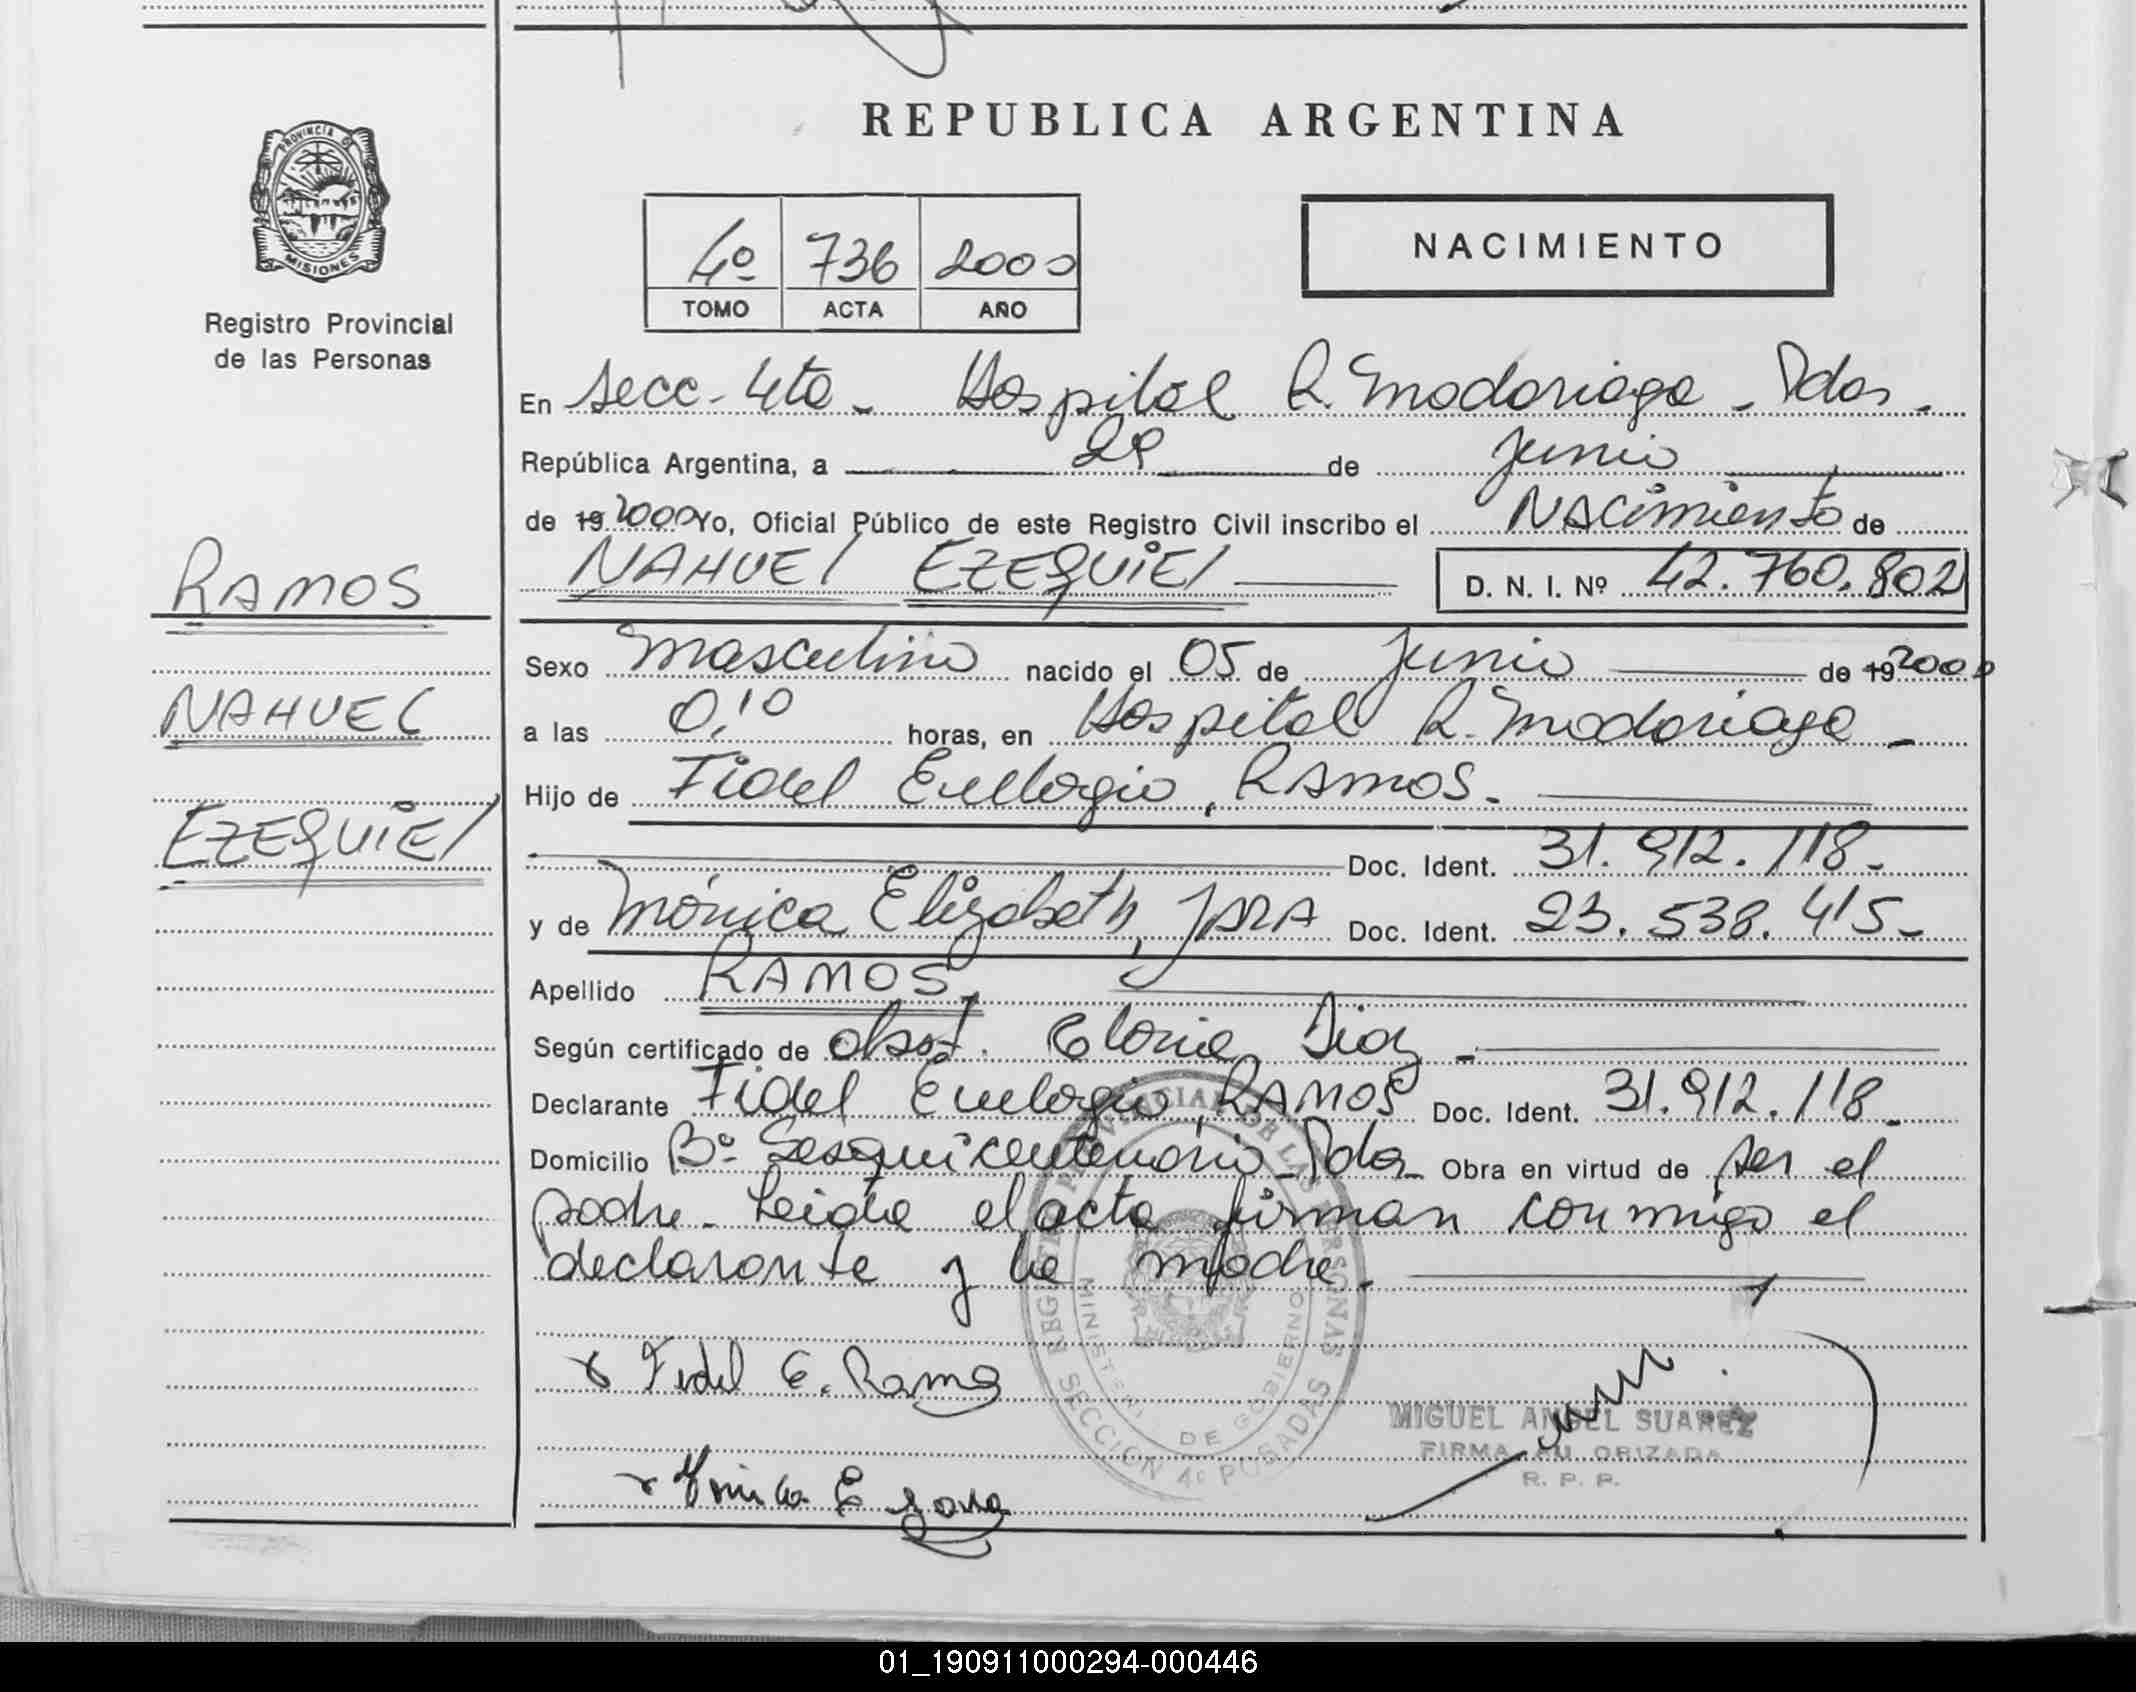 REPUBLICA ARGENTINA
PROVINCIA DE
MISIONES
Registro Provincial
de las Personas
4º 736 2000
TOMO ACTA AÑO
NACIMIENTO
En Secc. 4ta - Hospital R. Madariaga - Pdas.
República Argentina, a 29 de Junio
de 19 2000 Yo, Oficial Público de este Registro Civil inscribo el NACimiento de
NAHUEl EZEQUiEl D. N. I. Nº 42.760.802
RAMOS
NAHUEL
EZEQUiEl
Sexo masculino nacido el 05 de Junio de 19 2000
a las 0,10 horas, en Hospital R. Madariaga -
Hijo de Fidel Eulogio, RAMOS.
Doc. Ident. 31.912.118-
y de Mónica Elizabeth, JARA Doc. Ident. 23.538.415-
Apellido RAMOS
Según certificado de obst. Gloria Diaz -
Declarante Fidel Eulogio, RAMOS Doc. Ident. 31.912.118-
Domicilio Bº Sesquicentenario - Pdas Obra en virtud de ser el
padre - Leida el acta firman conmigo el
declarante y la madre.
REGISTRO PROVINCIAL DE LAS PERSONAS
MINISTERIO DE GOBIERNO
SECCION 4º POSADAS
x Fidel E. Ramos
x Monica E Jara
MIGUEL ANGEL SUAREZ
FIRMA AUTORIZADA
R. P. P.
01_190911000294-000446